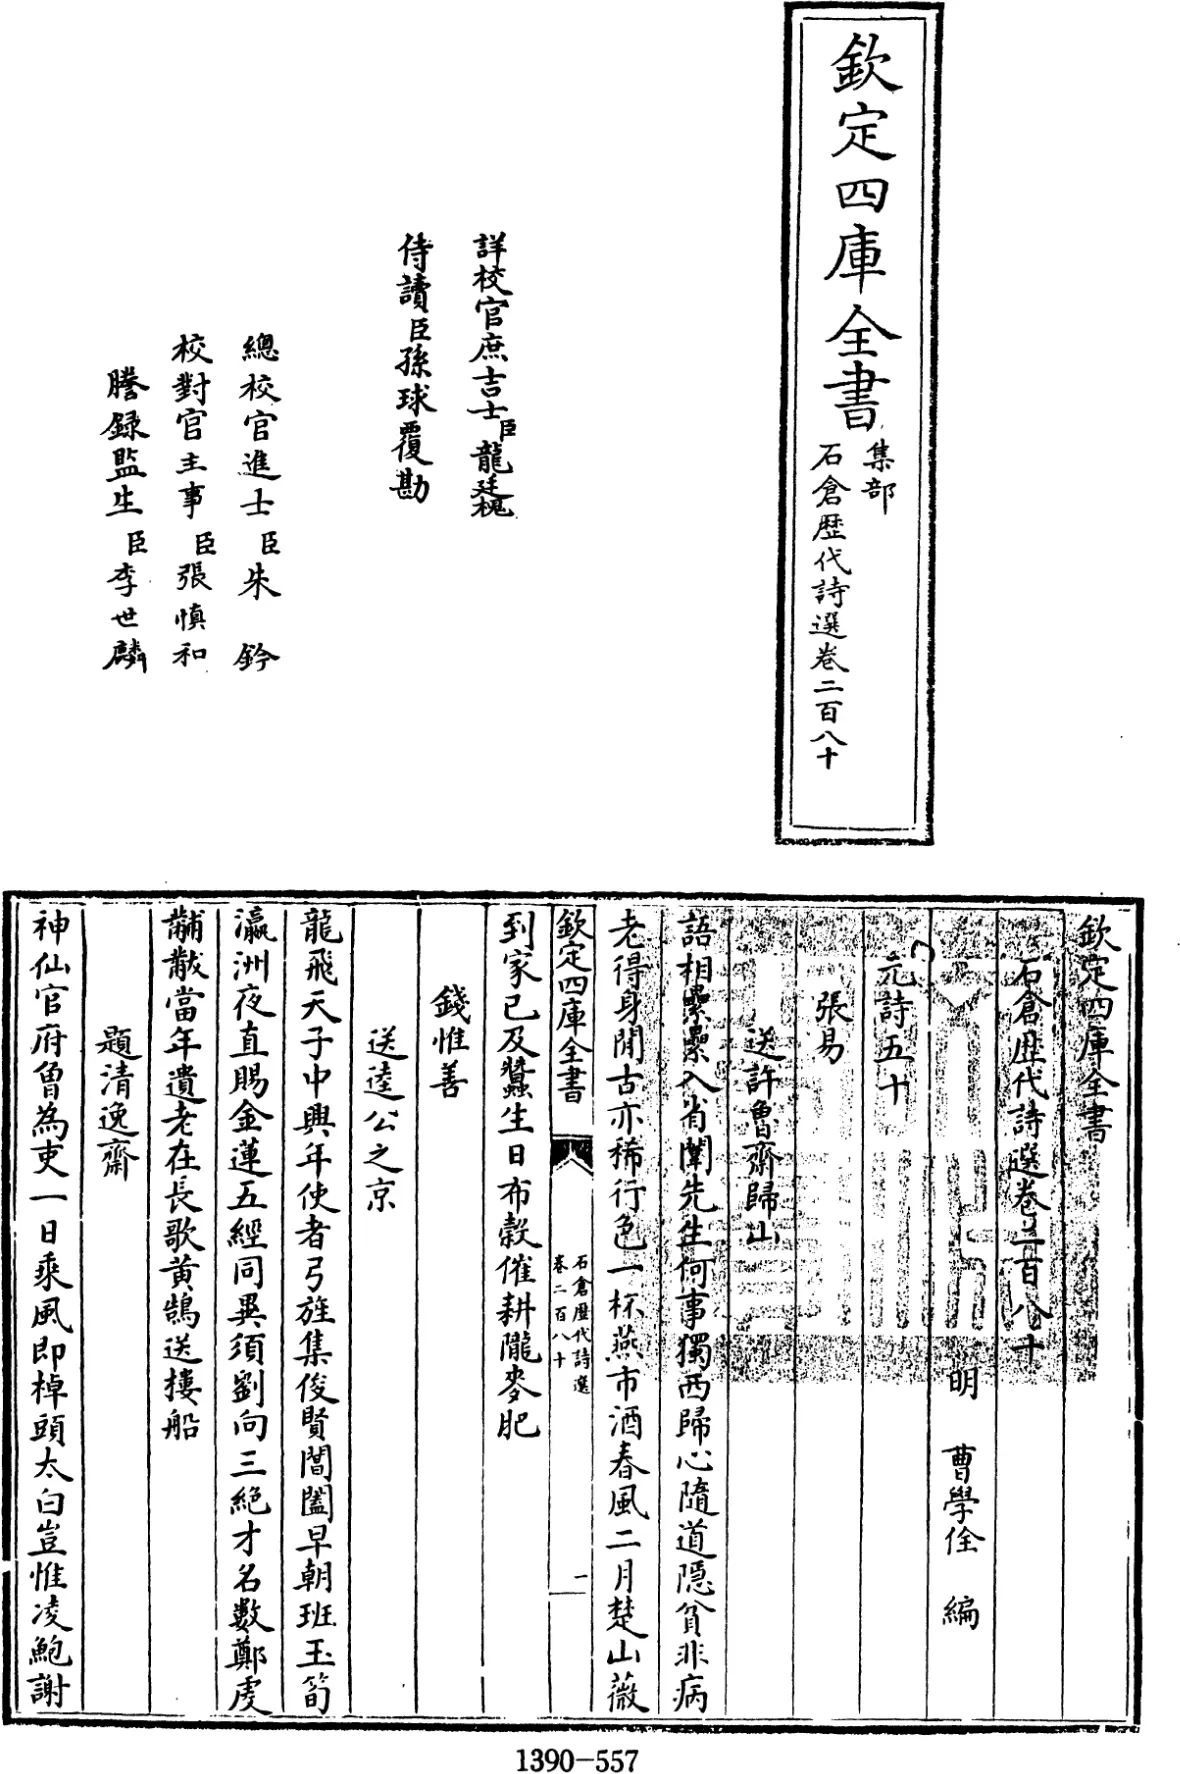 欽定四庫全書
集部
石倉歷代詩選卷二百八十
詳校官庶吉士臣龍廷槐
侍讀臣孫球覆勘
總校官進士臣朱鈐
校對官主事臣張慎和
謄錄監生臣李世麟
欽定四庫全書
石倉歷代詩選卷二百八十
明 曹學佺 編
元詩五十
張易
送許魯齋歸山
語相纍纍入省闈先生何事獨西歸心隨道隱貧非病
老得身閒古亦稀行色一杯燕市酒春風二月楚山薇
欽定四庫全書
石倉歷代詩選
卷二百八十
一
到家已及蠶生日布穀催耕隴麥肥
錢惟善
送逵公之京
龍飛天子中興年使者弓旌集俊賢閶闔早朝班玉筍
瀛洲夜直賜金蓮五經同異須劉向三絕才名數鄭虔
黼黻當年遺老在長歌黄鵠送樓船
題清逸齋
神仙官府曾為吏一日乘風即棹頭太白豈惟凌鮑謝
1390-557